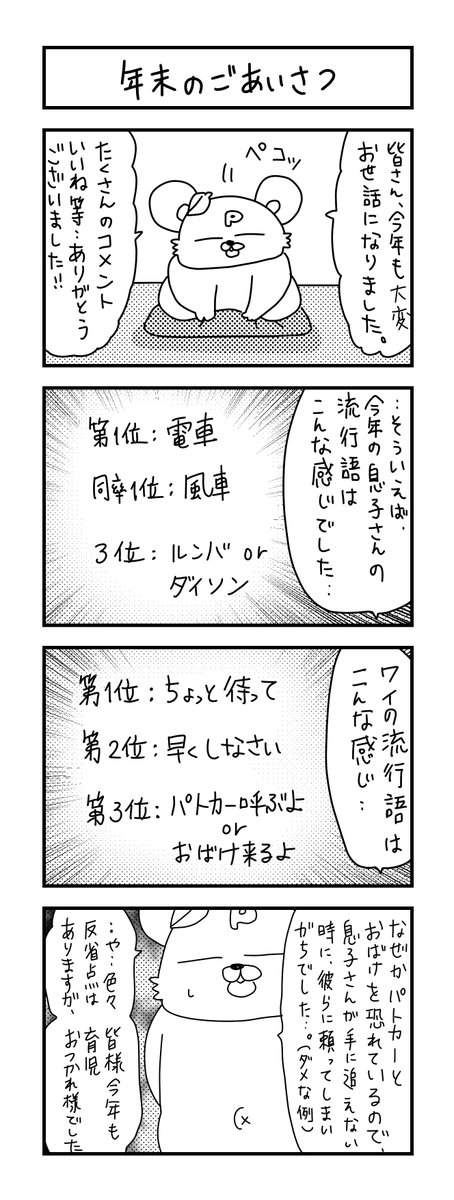 年末のごあいさつ
皆さん、今年も大変
お世話になりました。
ペコッ
P
たくさんのコメント
いいね等…ありがとう
ございました!!
…そういえば、
今年の息子さんの
流行語は
こんな感じでした…
第1位:電車
同率1位:風車
3位:ルンバ or
ダイソン
ワイの流行語は
こんな感じ…
第1位:ちょっと待って
第2位:早くしなさい
第3位:パトカー呼ぶよ
or
おばけ来るよ
なぜかパトカーと
おばけを恐れているので、
息子さんが手に追えない
時に、彼らに頼ってしまい
がちでした…。(ダメな例)
P
…や…色々
反省点は
ありますが、
皆様今年も
育児
おつかれ様でした